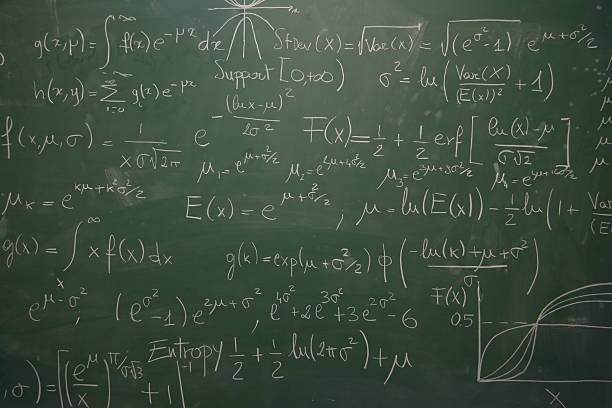 g(x,μ) = ∫_{-∞}^{∞} f(x) e^{-μx} dx
StDev(X) = √Var(X) = √(e^{σ²}-1) e^{μ+σ²/2}
h(x,y) = Σ_{i=0}^{∞} g(x) e^{-μx}
Support [0,+∞)
σ² = ln(Var(X)/(E(x))² + 1)
f(x,μ,σ) = 1/(xσ√2π) e^{-(lnx-μ)²/2σ²}
F(x) = 1/2 + 1/2 erf[(ln(x)-μ)/(σ√2)]
μ₁ = e^{μ+σ²/2} μ₂ = e^{2μ+4σ²/2} μ₃ = e^{3μ+9σ²/2}
μ_K = e^{κμ+κ²σ²/2}
E(x) = e^{μ+σ²/2} ; μ = ln(E(x)) - 1/2 ln(1 + Var
g(x) = ∫^{∞} x f(x) dx
g(k) = exp(μ+σ²/2) ϕ((-ln(κ)+μ+σ²)/σ)
e^{μ-σ²} ; (e^{σ²}-1) e^{2μ+σ²} , e^{4σ²} + 2e^{3σ²} + 3e^{2σ²} - 6
F(X)
0.5
Entropy 1/2 + 1/2 ln(2πσ²) + μ
,σ) = [(e^μ/x)^{π/σ√3} + 1]^{-1}
X